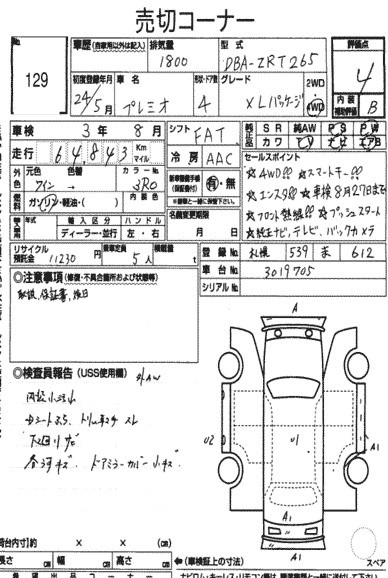 売切コーナー
No. 129
車歴 (自家用以外は記入) 排気量 1800 型式 DBA-ZRT265 評価点 4
初度登録年月 24/5月 車名 プレミオ 形状・ドア数 4 グレード XLパッケージ 2WD 4WD 内装補助評価 B
車検 3年 8月 シフト FAT 純正品 SR 純AW PS PW
カワ ナビ エアB
走行 64,843 Km マイル 冷房 AAC セールスポイント
外色 元色 ワイン → 色替 カラーNo. 3R0 内装色
☆4WD!! ☆スマートキー!!
燃料 ガソリン・軽油・( ) 新車整備手帳(保証書付) 有・無
☆エンスタ!! ☆車検8月27日まで
※書類と一緒に保管下さい。
☆フロント熱線!! ☆プッシュスタート
輸入車 年式 輸入区分 ハンドル 名義変更期限
ディーラー・並行 左・右 月 日
☆純正ナビ、テレビ、バックカメラ
リサイクル預託金 11230円 乗車定員 5人 積載量 t 登録No. 札幌 539 ま 612
車台No. 3019705
◎注意事項 (修復・不具合箇所および状態等) シリアルNo.
取説、保証書、後日
◎検査員報告 (USS使用欄) 外AW
内装小汚れ
下回りサビ
各所キズ ドアミラーカバー小キズ
A
U2 U1 A1
A1
A1
荷台内寸)約 × × (cm)
長さ cm 幅 cm 高さ cm ←(車検証上の寸法) スペア